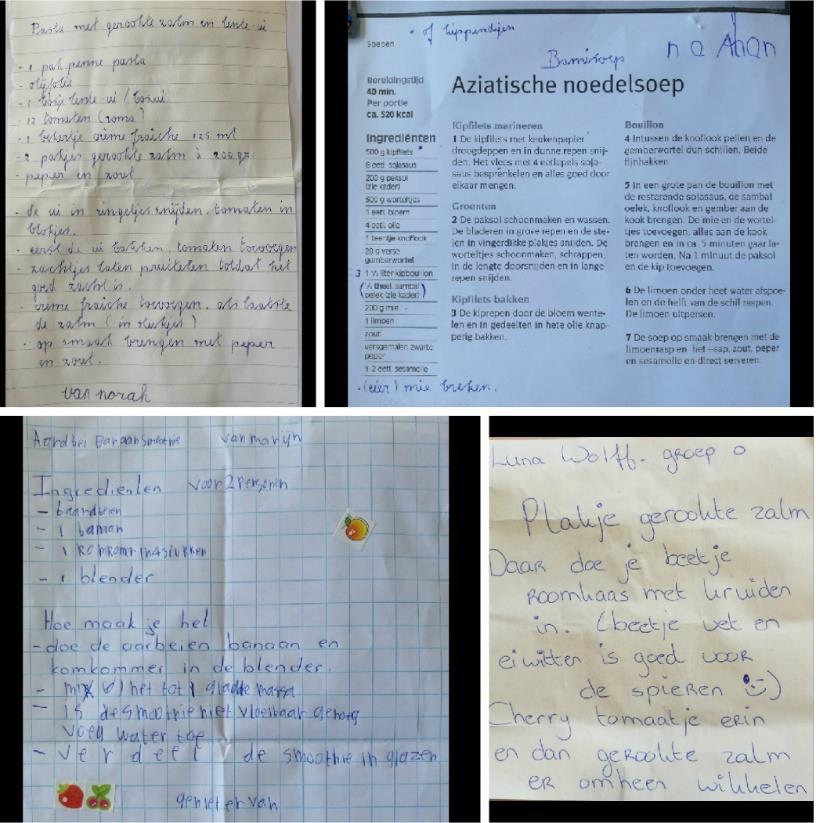 Pasta met gerookte zalm en lente ui
- 1 pak penne pasta
- olijfolie
- 1 bosje lente ui / bosui
- 12 tomaten (roma)
- 1 bekertje crème fraîche 125 ml
- 2 pakjes gerookte zalm à 200 gr.
- peper en zout
- de ui in ringetjes snijden, tomaten in
blokjes.
- eerst de ui bakken, tomaten toevoegen
- zachtjes laten pruttelen totdat het
goed zacht is.
- crème fraîche toevoegen, als laatste
de zalm (in stukjes)
- op smaak brengen met peper
en zout.
van norah
Soepen
* of kippendijen
Bamisoep
Bereidingstijd
40 min.
Per portie
ca. 520 kcal
Aziatische noedelsoep
Ingrediënten
500 g kipfilets *
8 eetl. sojasaus
200 g paksoi
(zie kader)
500 g worteltjes
1 eetl. bloem
4 eetl. olie
1 teentje knoflook
20 g verse
gemberwortel
3 1 ½ liter kipbouillon
(½ theel. sambal
oelek (zie kader))
200 g mie
1 limoen
zout
versgemalen zwarte
peper
1-2 eetl. sesamolie
mie breken.
Kipfilets marineren
1 De kipfilets met keukenpapier
droogdeppen en in dunne repen snij-
den. Het vlees met 4 eetlepels soja-
saus besprenkelen en alles goed door
elkaar mengen.
Groenten
2 De paksoi schoonmaken en wassen.
De bladeren in grove repen en de ste-
len in vingerdikke plakjes snijden. De
worteltjes schoonmaken, schrappen,
in de lengte doorsnijden en in lange
repen snijden.
Kipfilets bakken
3 De kiprepen door de bloem wente-
len en in gedeelten in hete olie knap-
perig bakken.
Bouillon
4 Intussen de knoflook pellen en de
gemberwortel dun schillen. Beide
fijnhakken.
5 In een grote pan de bouillon met
de resterende sojasaus, de sambal
oelek, knoflook en gember aan de
kook brengen. De mie en de wortel-
tjes toevoegen, alles aan de kook
brengen en in ca. 5 minuten gaar la-
ten worden. Na 1 minuut de paksoi
en de kip toevoegen.
6 De limoen onder heet water afspoe-
len en de helft van de schil raspen.
De limoen uitpersen.
7 De soep op smaak brengen met de
limoenrasp en het -sap, zout, peper
en sesamolie en direct serveren.
Aardbei Banaan smoothie van marijn
Ingrediënten voor 2 Personen
- 6 aardbeien
- 1 banaan
- 1 in 4 stukken
- 1 blender
Hoe maak je het
- doe de aarbeien banaan en
komkommer in de blender.
- mix het tot 1 gladde massa
- is de smoothie niet vloeibaar genoeg
voeg water toe
- verdeel de smoothie in glazen
geniet ervan
Luna Wolff. groep 0
Plakje gerookte zalm
Daar doe je beetje
roomkaas met kruiden
in. (beetje vet en
eiwitten is goed voor
de spieren :-)
Cherry tomaatje erin
en dan gerookte zalm
er omheen wikkelen